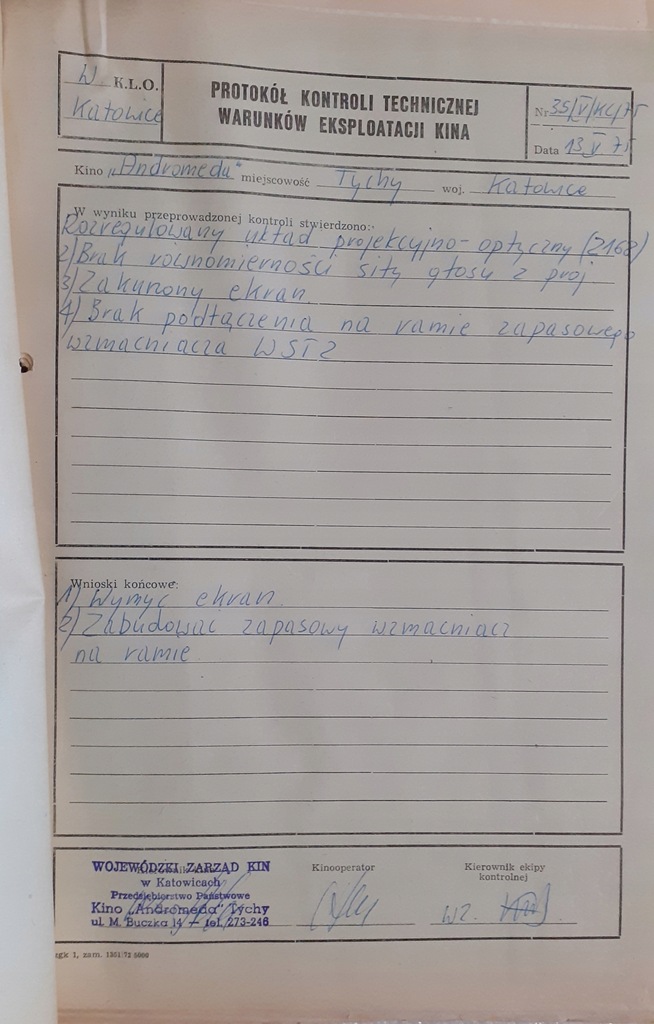 W K.L.O.
Katowice
PROTOKÓŁ KONTROLI TECHNICZNEJ
WARUNKÓW EKSPLOATACJI KINA
Nr 35/V/KL/75
Data 13 V 75
Kino „Andromeda" miejscowość Tychy woj. Katowice
W wyniku przeprowadzonej kontroli stwierdzono:
Rozregulowany układ projekcyjno-optyczny (2168)
2) Brak równomierności siły głosu z proj.
3) Zakurzony ekran
4) Brak podłączenia na ramie zapasowego
wzmacniacza WST2
Wnioski końcowe:
1) Wymyć ekran.
2) Zabudować zapasowy wzmacniacz
na ramie
WOJEWÓDZKI ZARZĄD KIN
w Katowicach
Przedsiębiorstwo Państwowe
Kino „Andromeda" Tychy
ul. M. Buczka 14 — tel. 273-246
Kinooperator
Kierownik ekipy
kontrolnej
wz.
zam. 1351/72 5000